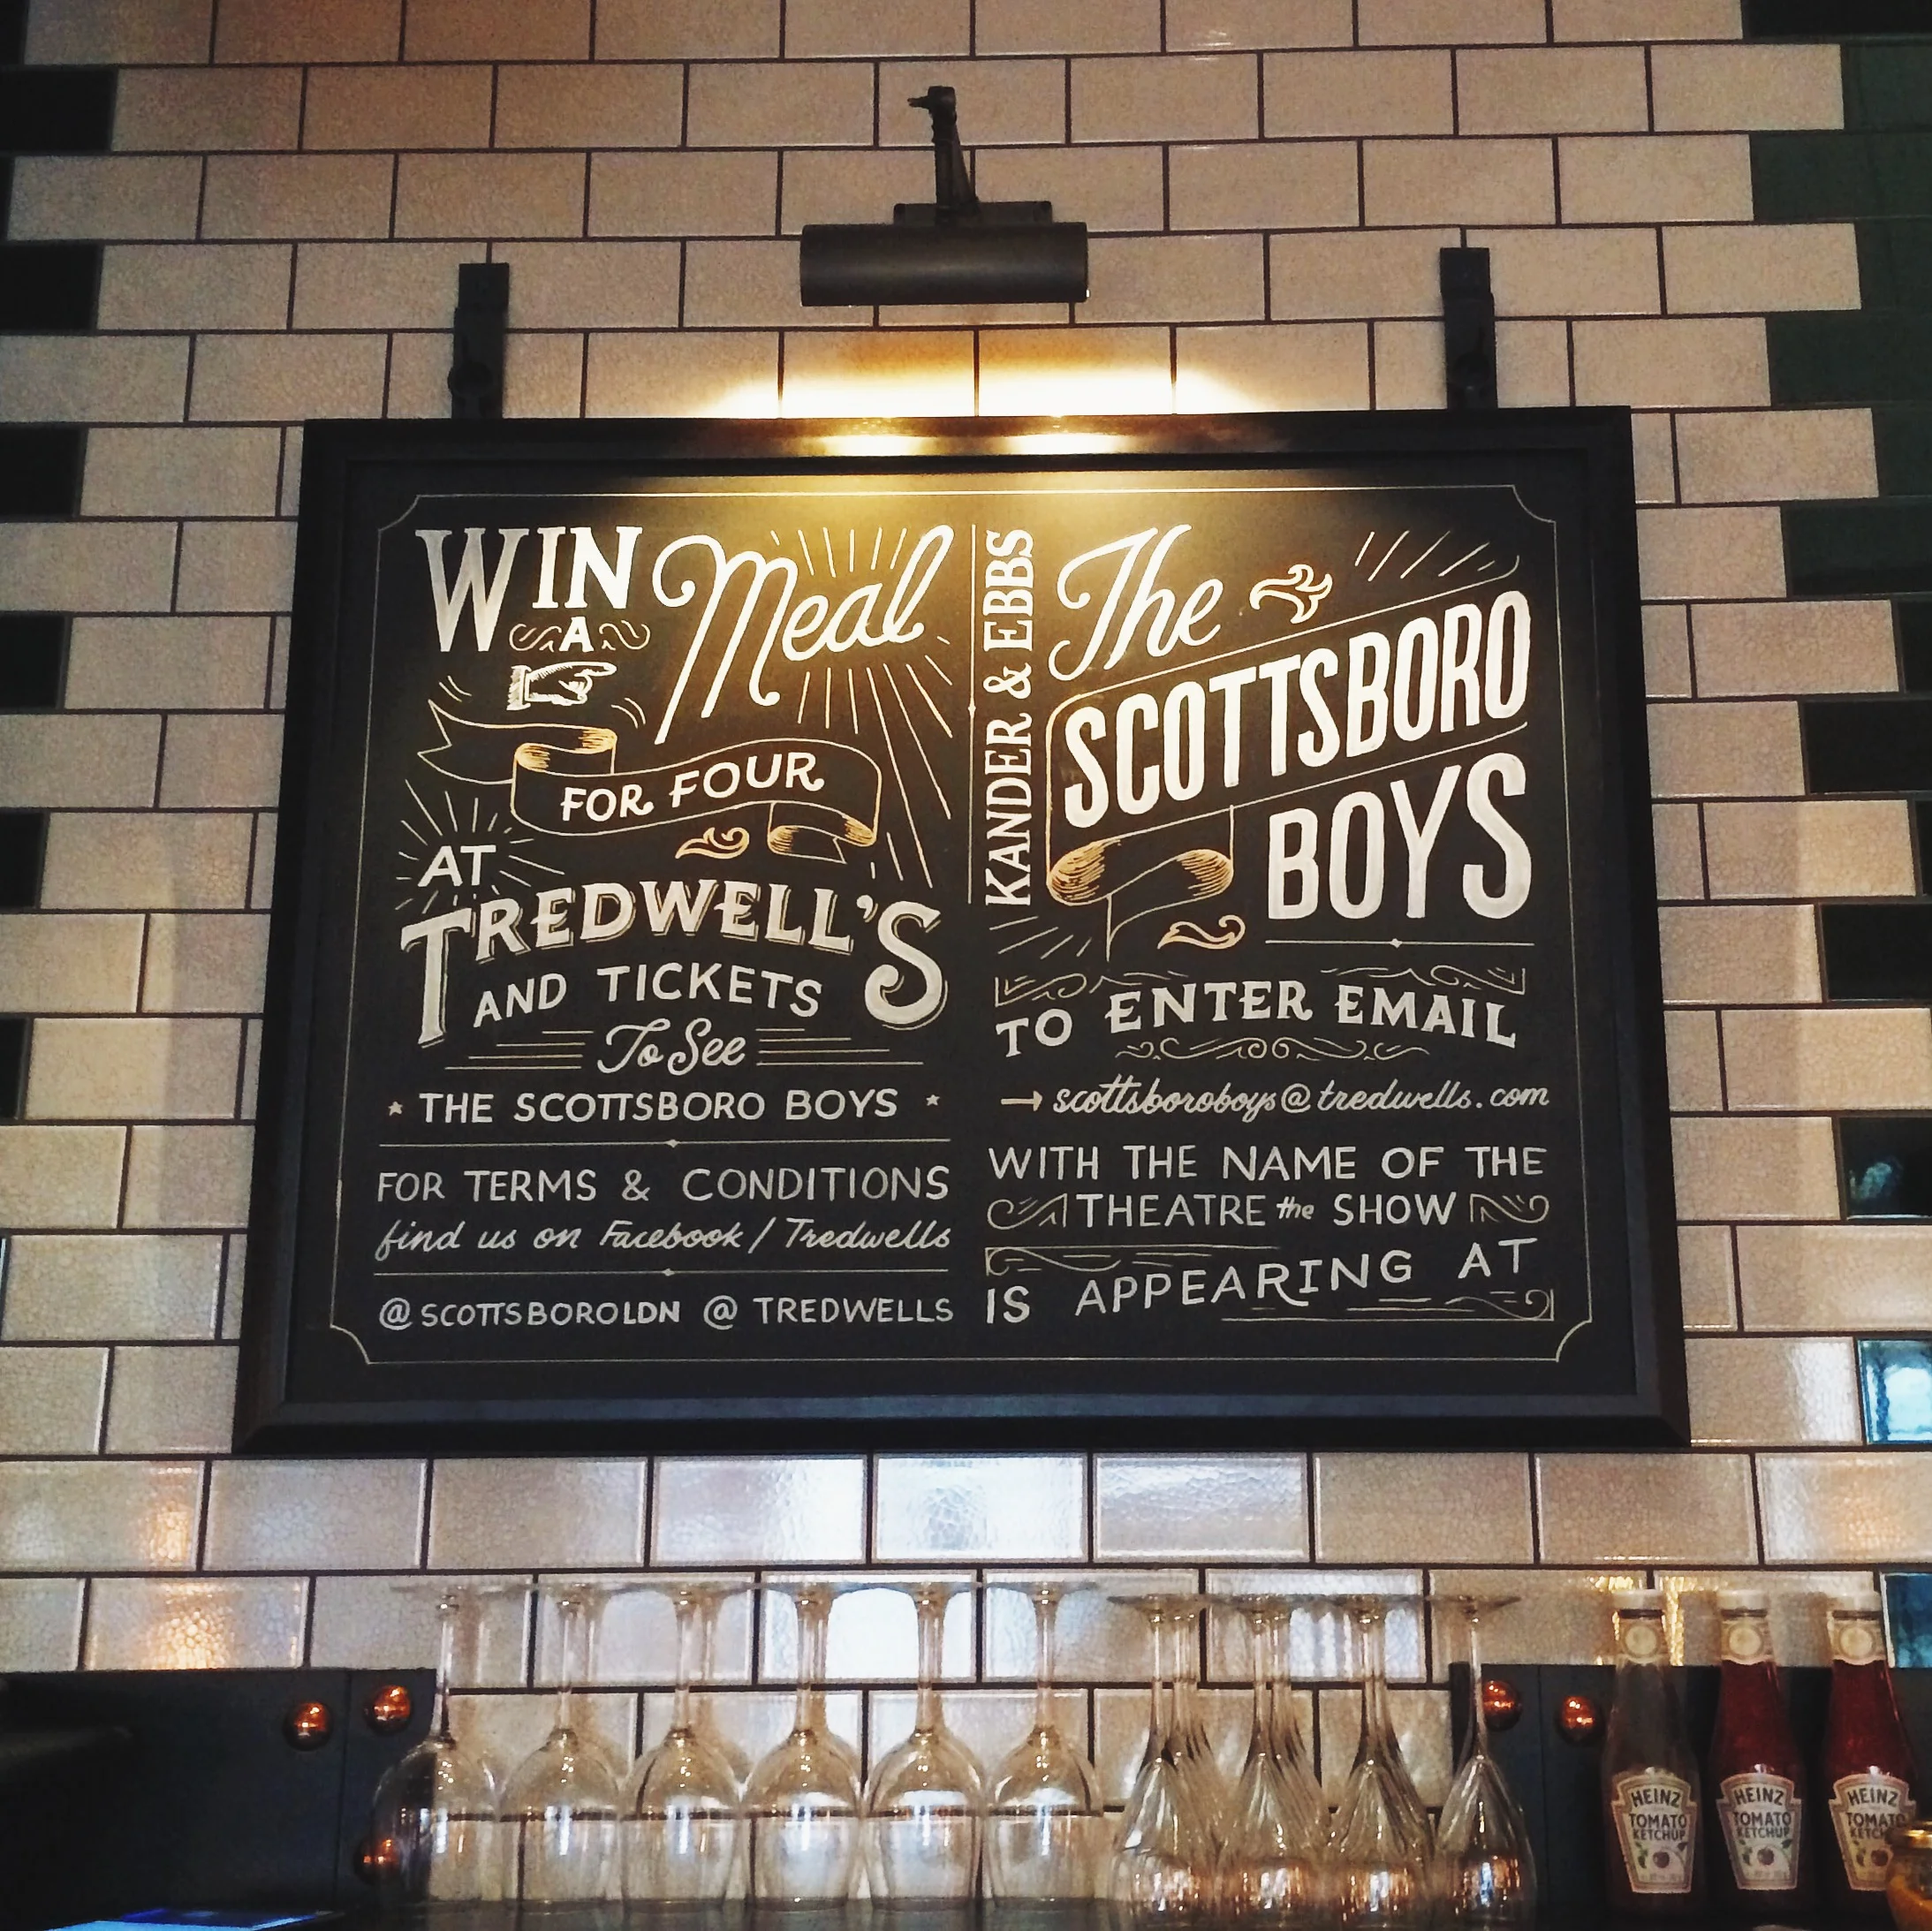 WIN
A
Meal
FOR FOUR
AT
TREDWELL'S
AND TICKETS
To See
THE SCOTTSBORO BOYS
FOR TERMS & CONDITIONS
find us on Facebook / Tredwells
@SCOTTSBOROLDN @ TREDWELLS
KANDER & EBBS
The
SCOTTSBORO
BOYS
TO ENTER EMAIL
→ scottsboroboys@tredwells.com
WITH THE NAME OF THE
THEATRE the SHOW
IS APPEARING AT
HEINZ
TOMATO
KETCHUP
HEINZ
TOMATO
KETCHUP
HEINZ
TOMATO
KETCHUP